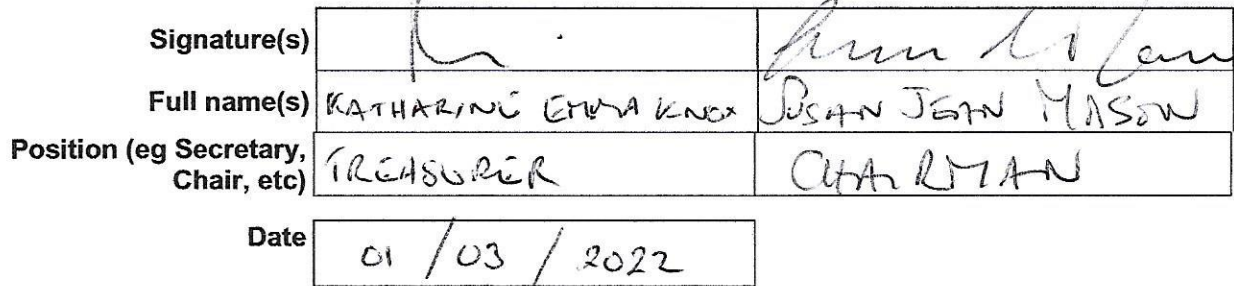 Signature(s)
Full name(s) KATHARINE EMMA KNOX SUSAN JEAN MASON
Position (eg Secretary, TREASURER CHAIRMAN
Chair, etc)
Date 01 / 03 / 2022